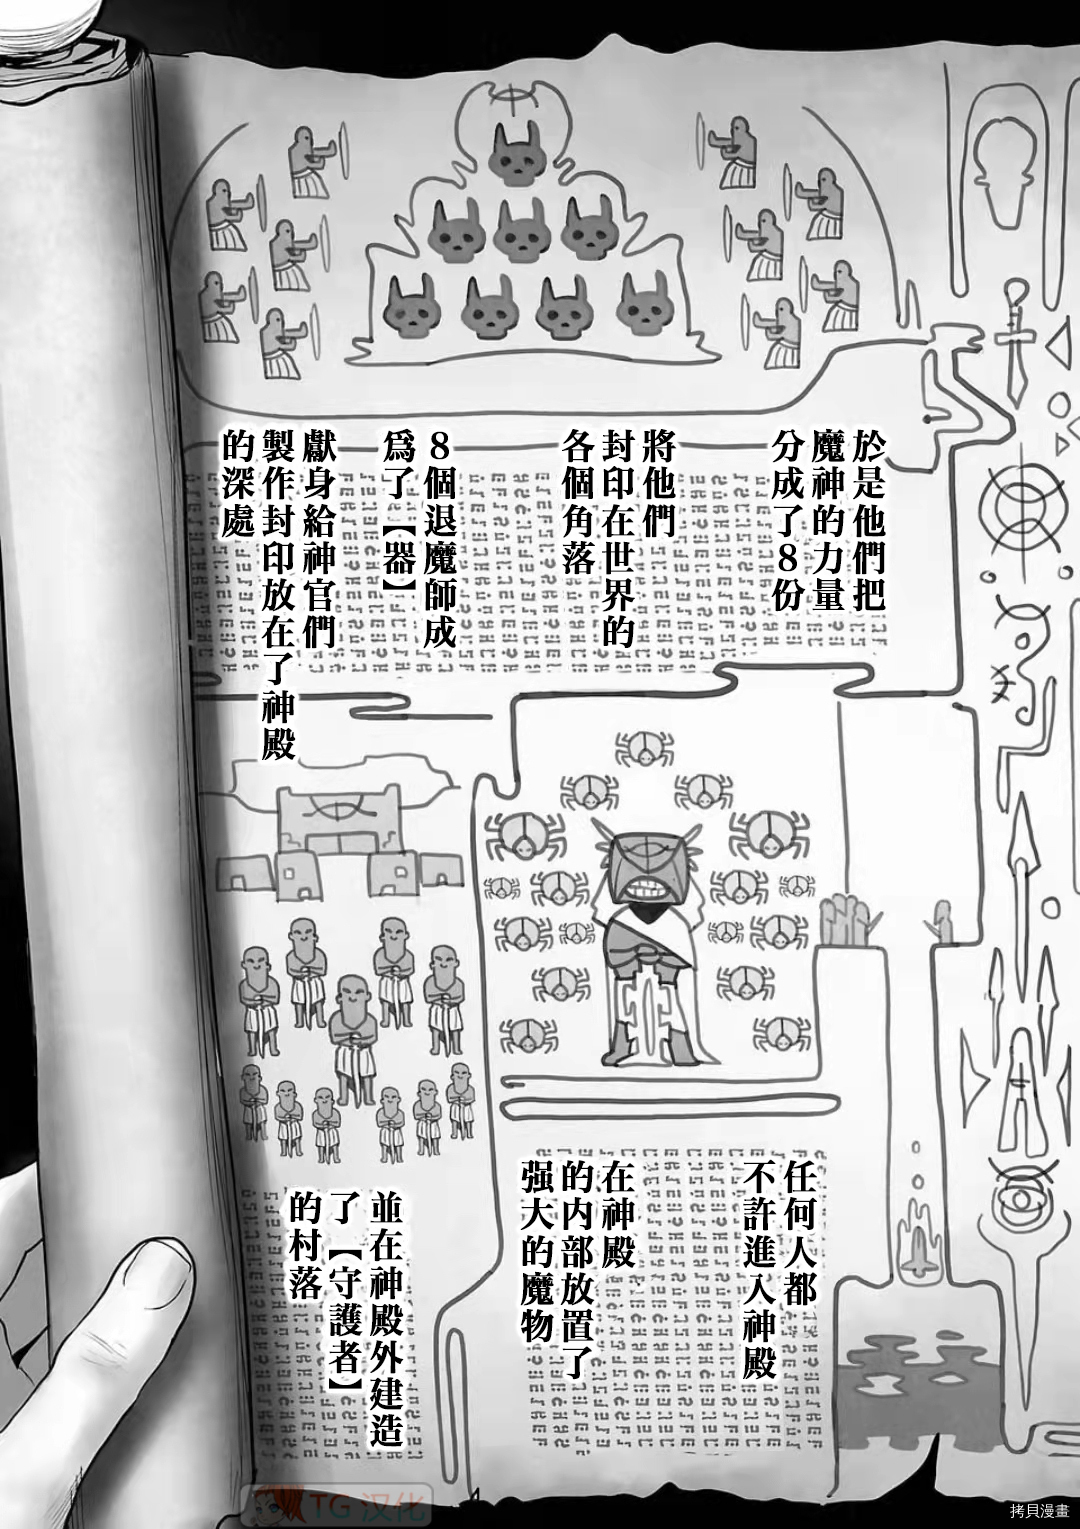 於是他們把
魔神的力量
分成了8份
將他們
封印在世界的
各個角落
8個退魔師成
爲了【器】
獻身給神官們
製作封印放在了神殿
的深處
任何人都
不許進入神殿
在神殿
的内部放置了
强大的魔物
並在神殿外建造
了【守護者】
的村落
TG 汉化
拷貝漫畫